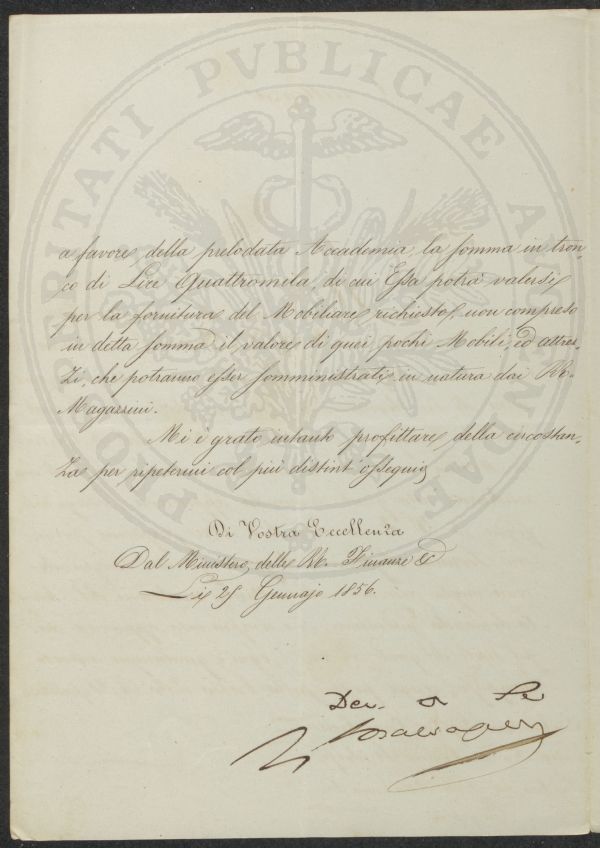 PROSPERITATI PVBLICAE AVGENDAE
a favore della prelodata Accademia la somma in tron,
co di Lire Quattromila, di cui Essa potrà valersi
per la fornitura del Mobiliare richiesto, non compreso
in detta somma il valore di quei pochi Mobili, ed attrez,
zi, che potranno esser somministrati in natura dai RR.
Magazzini.
Mi è grato intanto profittare della circostan,
za per ripetermi col più distint'ossequio
Di Vostra Eccellenza
Dal Ministero delle RR. Finanze &
Lì 25 Gennajo 1856.
Dev.